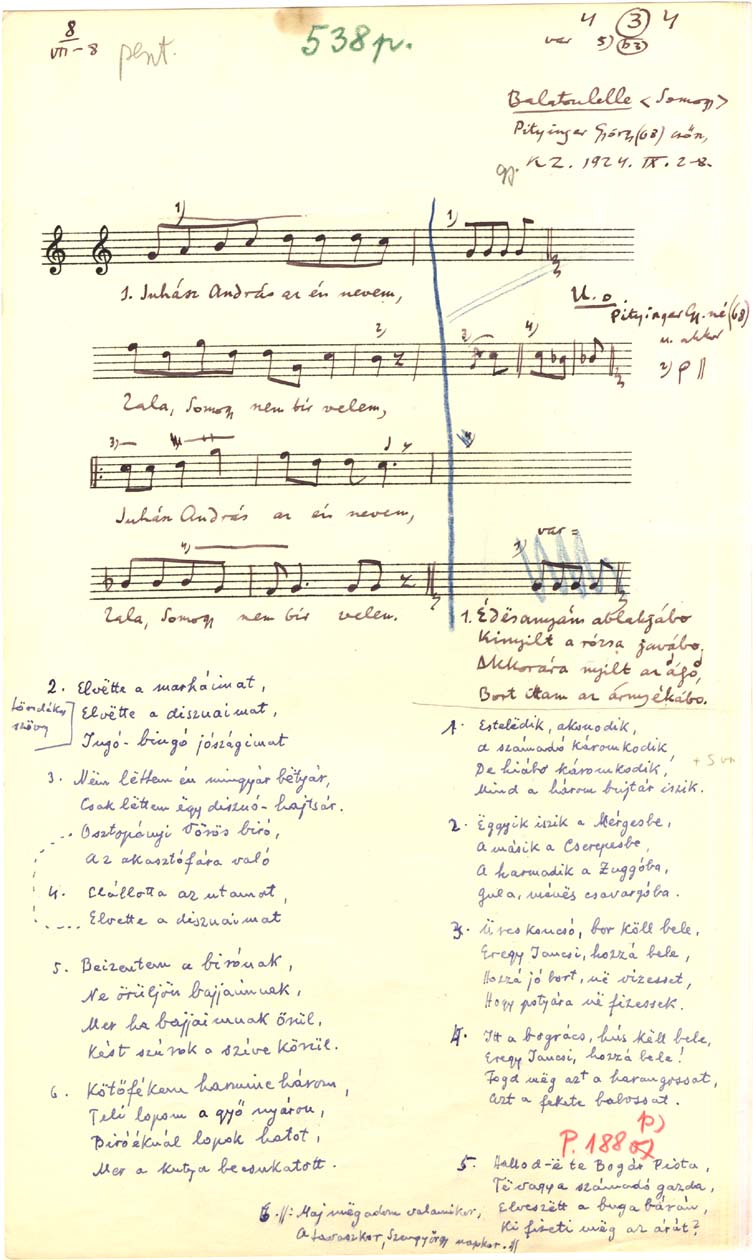 8
VII-8
pent.
538p.
4 3 4
var 5) b3
Balatonlelle <Somogy>
Pityinger György (68) csősz,
K Z. 1924. IX. 2-8.
gy.
1)
1)
1. Juhász András az én nevem,
U.o.
Pityinger Gy.né (68)
u. akkor
2)
3)
4)
2)
Zala, Somogy nem bir velem,
3)
Juhász András az én nevem,
4)
1) var =
Zala, Somogy nem bir velem.
1. Édësanyám ablakjábo
Kinyilt a rózsa javábo,
Akkorára nyilt az ágo,
Bort ittam az árnyékábo.
2. Elvëtte a marháimat,
Elvëtte a disznaimat,
Ingó-bingó jószágimat
szöveg
3. Nëm lëttem én mingyár bëtyár,
Csak lëttem ëgy disznó-hajtsár.
Osztopányi Vörös biró,
Az akasztófára való
4. Elállotta az utamat,
Elvette a disznaimat
5. Beizentem a birónak,
Ne örüljön bajjaimnak,
Mer ha bajjaimnak örül,
Kést szúrok a szíve körül.
6. Kötőfékem harminc három,
Teli lopom a győ nyáron,
Biróéknál lopok hatot,
Mer a kutya becsukatott.
1. Estelëdik, alkonodik,
A számadó káromkodik,
De hiábo káromkodik,
Mind a három bujtár iszik.
2. Ëggyik iszik a Mérgesbe,
A másik a Cserepesbe,
A harmadik a Zuggóba,
Gula, ménës csavargóba.
3. Üres koncsó, bor köll bele,
Eregy Jancsi, hozzá bele,
Hozzá jó bort, në vizesset,
Hogy potyára në fizessek.
4. Itt a bogrács, hús këll bele,
Eregy Jancsi, hozzá bele!
Fogd mëg azt a harangossat,
Azt a fekete balossat.
P. 188
p)
5. Hallod-ë te Bogár Pista,
Të vagy a számadó gazda,
Elveszëtt a buga bárán,
Ki fizeti mëg az árát?
6. //: Maj mëgadom valamikor,
A tavaszkor, Szengyörgy napkor. //